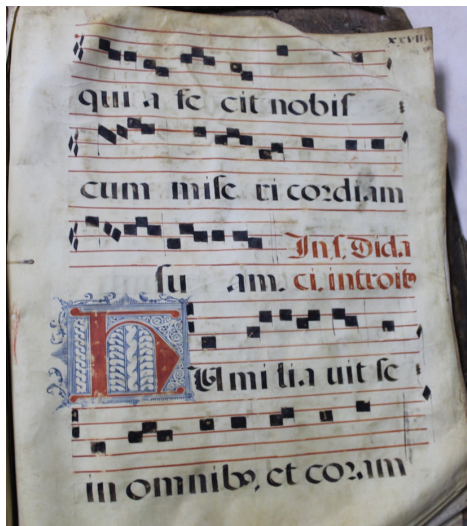 qui a fe cit nobiſ
cum miſe ri cordiam
In ſ. Dida
ſu am. ci. introitꝰ
HUmi li a uit ſe
in omnibꝰ, et coram